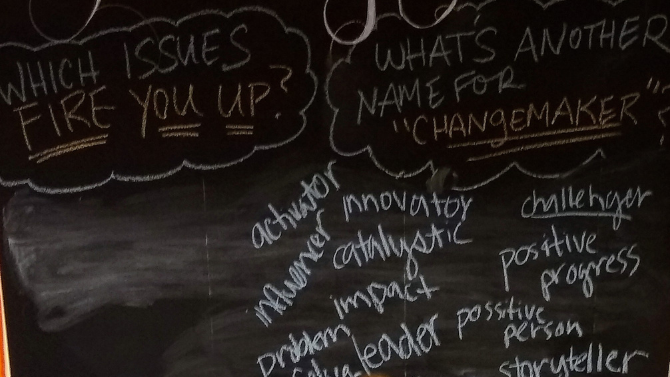 WHICH ISSUES
FIRE YOU UP?
WHAT'S ANOTHER
NAME FOR
"CHANGEMAKER"
activator
innovator
challenger
influencer
catalystic
positive
progress
impact
problem
leader
possitive
person
storyteller